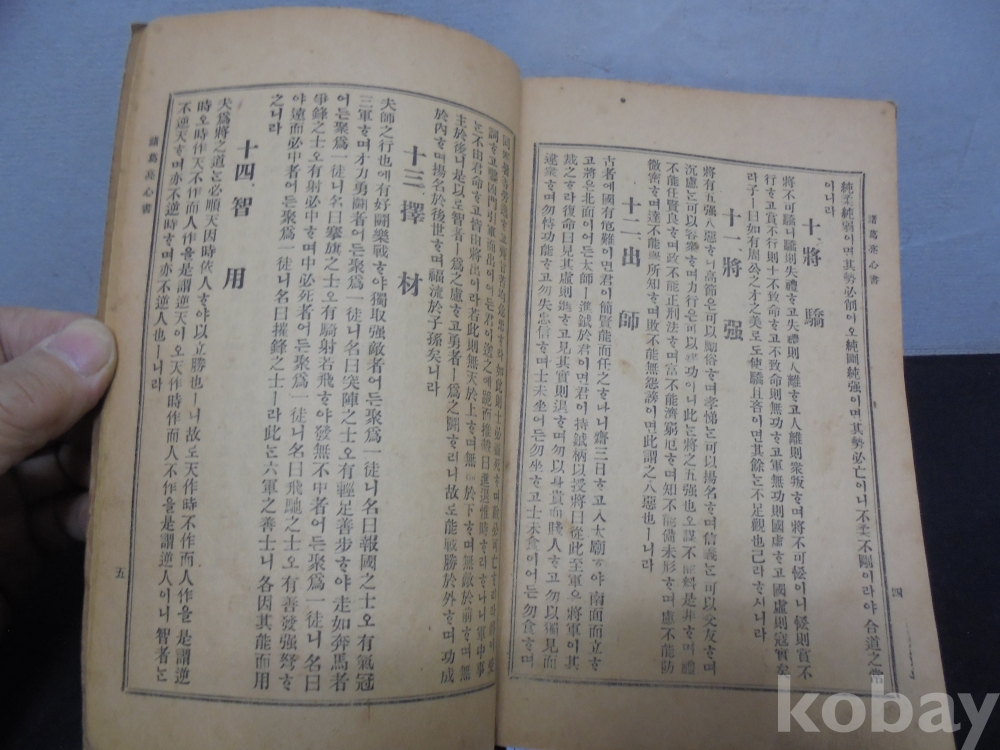 諸葛亮心書
純柔純弱이면其勢必削이오純剛純强이면其勢必亡이니不柔不剛이라야合道之常
이니라
十 將 驕
將不可驕니驕則失禮ᄒᆞ고失禮則人離ᄒᆞ고人離則衆叛ᄒᆞ며將不可悋이니悋則賞不
行ᄒᆞ고賞不行則士不致命ᄒᆞ고不致命則無功ᄒᆞ고軍無功則國虛ᄒᆞ고國虛則寇實矣
라子ㅣ曰如有周公之才之美로도使驕且吝이면其餘ᄂᆞᆫ不足觀也已라ᄒᆞ시니라
十一 將 强
將有五强八惡ᄒᆞ니高節은可以厲俗ᄒᆞ며孝悌ᄂᆞᆫ可以揚名ᄒᆞ며信義ᄂᆞᆫ可以交友ᄒᆞ며
沉慮ᄂᆞᆫ可以容衆ᄒᆞ며力行은可以建功이니此ᄂᆞᆫ將之五强也오謀不能料是非ᄒᆞ며禮
不能任賢良ᄒᆞ며政不能正刑法ᄒᆞ며富不能濟窮厄ᄒᆞ며知不能備未形ᄒᆞ며慮不能防
微密ᄒᆞ며達不能擧所知ᄒᆞ며敗不能無怨謗이면此謂之八惡也ㅣ니라
十二 出 師
古者에國有危難이면君이簡賢能而任之ᄒᆞ나니齋三日ᄒᆞ고入太廟ᄒᆞ야南面而立ᄒᆞ
고將은北面이어든太師ㅣ進鉞於君이면君이持鉞柄以授將曰從此至軍으將軍이其
裁之라復命曰見其虛則進ᄒᆞ고見其實則退ᄒᆞ며勿以身貴而賤人ᄒᆞ고勿以獨見而
違衆ᄒᆞ며勿恃功能ᄒᆞ고勿失忠信ᄒᆞ며士未坐어든勿坐ᄒᆞ고士未食이어든勿食ᄒᆞ며
四
詞ᄒᆞ고鑿凶門引軍而出이어든君이送之ᄒᆞᆯ새跪而推轂曰進退惟時라ᄒᆞ나니軍中事
ᄂᆞᆫ不由君命ᄒᆞ고皆由將出이라若此則無天於上ᄒᆞ며無地於下ᄒᆞ며無敵於前ᄒᆞ며無
主於後니是以로智者ㅣ爲之慮ᄒᆞ고勇者ㅣ爲之鬪ᄒᆞ리니故로能戰勝於外ᄒᆞ며功成
於內ᄒᆞ며揚名於後世ᄒᆞ며福流於子孫矣니라
十三 擇 材
夫師之行也에有好鬪樂戰ᄒᆞ야獨取强敵者어든聚爲一徒니名曰報國之士오有氣冠
三軍ᄒᆞ며才力勇鬪者어든聚爲一徒니名曰突陣之士오有輕足善步ᄒᆞ야走如奔馬者
어든聚爲一徒니名曰搴旗之士오有騎射若飛ᄒᆞ야發無不中者어든聚爲一徒니名曰
爭鋒之士오有射必中ᄒᆞ며中必死者어든聚爲一徒니名曰飛馳之士오有善發强弩ᄒᆞ
야遠而必中者어든聚爲一徒니名曰摧鋒之士ㅣ라此ᄂᆞᆫ六軍之善士니各因其能而用
之니라
十四 智 用
夫爲將之道ᄂᆞᆫ必順天因時依人ᄒᆞ야以立勝也ㅣ니故로天作時不作而人作을是謂逆
時오時作天不作而人作을是謂逆天이오天作時作而人不作을是謂逆人이니智者ᄂᆞᆫ
不逆天ᄒᆞ며亦不逆時ᄒᆞ며亦不逆人也ㅣ니라
諸葛亮心書
五
kobay